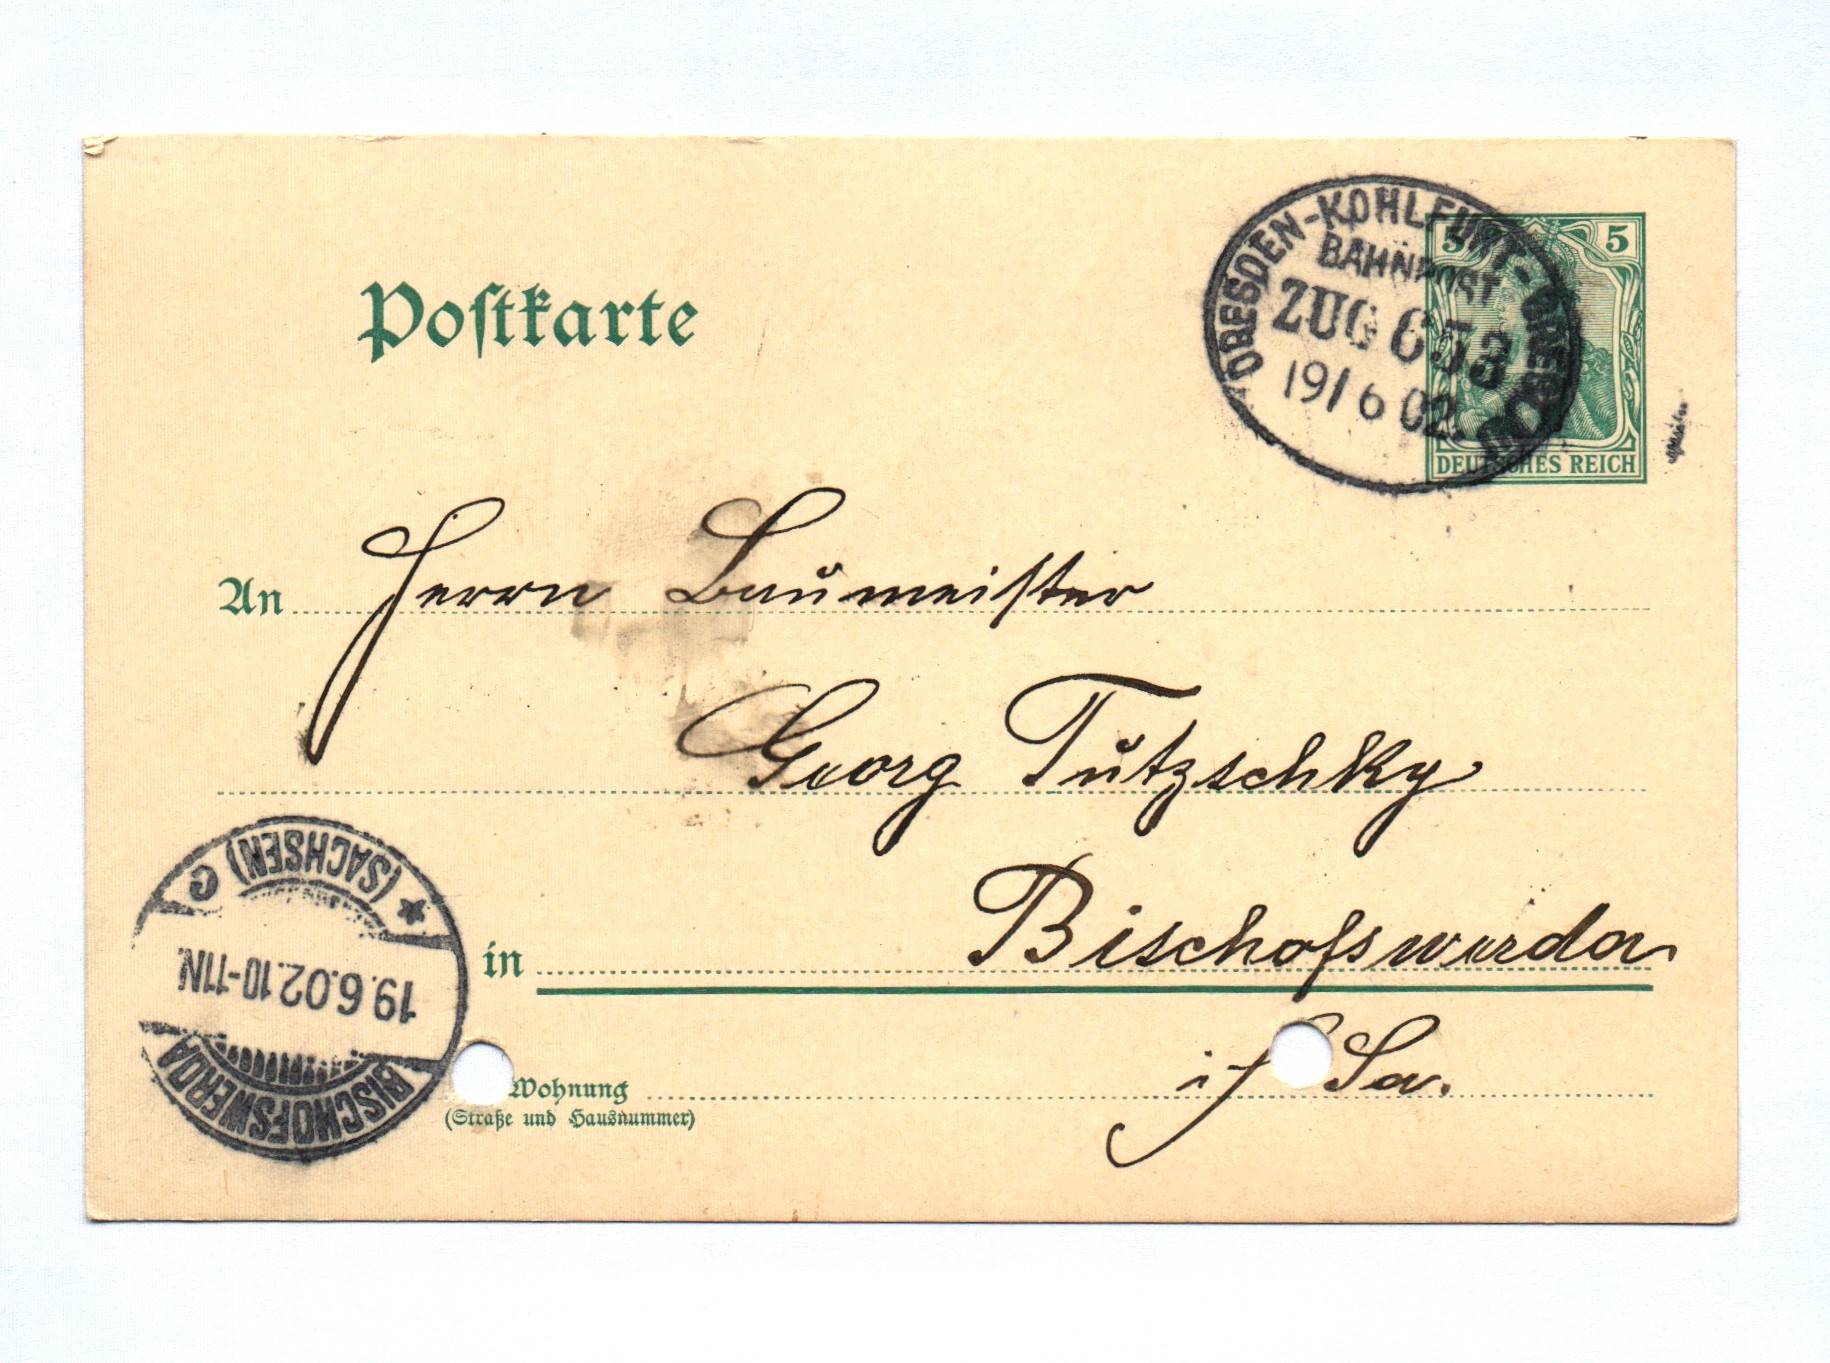 DRESDEN-KOHLFURT-DRESDEN
BAHNPOST
ZUG 653
19/6 02.
5 5
DEUTSCHES REICH
Postkarte
An Herrn Baumeister
Georg Tützschky
in Bischofswerda
i/ Sa.
Wohnung
(Straße und Hausnummer)
BISCHOFSWERDA
19.6.02.10-11N.
* (SACHSEN) C